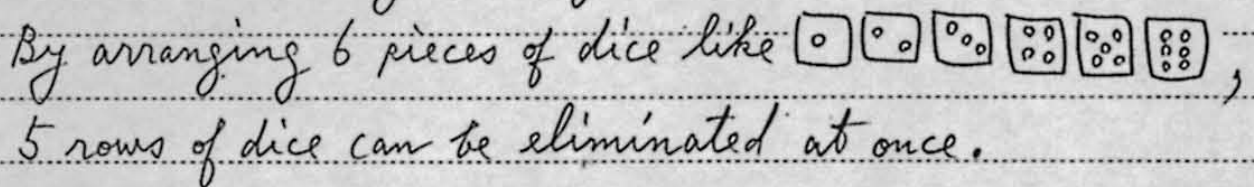 By arranging 6 pieces of dice like ⚀ ⚁ ⚂ ⚃ ⚄ ⚅,
5 rows of dice can be eliminated at once.